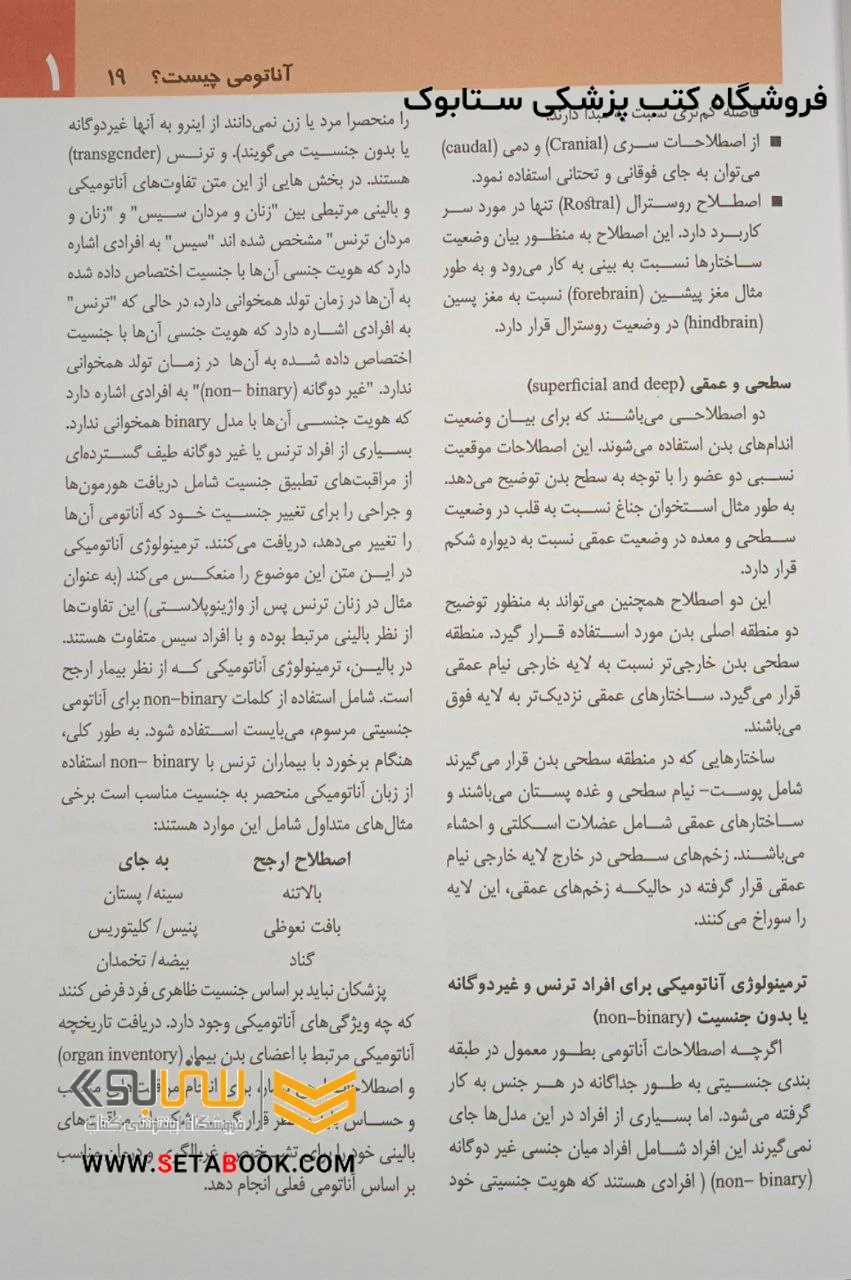 آناتومی چیست؟ ۱۹
۱
فروشگاه کتب پزشکی ستابوک
فاصله کم‌تری نسبت به مبدا دارند.
■ از اصطلاحات سری (Cranial) و دمی (caudal)
می‌توان به جای فوقانی و تحتانی استفاده نمود.
■ اصطلاح روسترال (Rostral) تنها در مورد سر
کاربرد دارد. این اصطلاح به منظور بیان وضعیت
ساختارها نسبت به بینی به کار می‌رود و به طور
مثال مغز پیشین (forebrain) نسبت به مغز پسین
(hindbrain) در وضعیت روسترال قرار دارد.
سطحی و عمقی (superficial and deep)
دو اصطلاحی می‌باشند که برای بیان وضعیت
اندام‌های بدن استفاده می‌شوند. این اصطلاحات موقعیت
نسبی دو عضو را با توجه به سطح بدن توضیح می‌دهد.
به طور مثال استخوان جناغ نسبت به قلب در وضعیت
سطحی و معده در وضعیت عمقی نسبت به دیواره شکم
قرار دارد.
این دو اصطلاح همچنین می‌تواند به منظور توضیح
دو منطقه اصلی بدن مورد استفاده قرار گیرد. منطقه
سطحی بدن خارجی‌تر نسبت به لایه خارجی نیام عمقی
قرار می‌گیرد. ساختارهای عمقی نزدیک‌تر به لایه فوق
می‌باشند.
ساختارهایی که در منطقه سطحی بدن قرار می‌گیرند
شامل پوست- نیام سطحی و غده پستان می‌باشند و
ساختارهای عمقی شامل عضلات اسکلتی و احشاء
می‌باشند. زخم‌های سطحی در خارج لایه خارجی نیام
عمقی قرار گرفته در حالیکه زخم‌های عمقی، این لایه
را سوراخ می‌کنند.
ترمینولوژی آناتومیکی برای افراد ترنس و غیردوگانه
یا بدون جنسیت (non-binary)
اگرچه اصطلاحات آناتومی بطور معمول در طبقه
بندی جنسیتی به طور جداگانه در هر جنس به کار
گرفته می‌شود. اما بسیاری از افراد در این مدل‌ها جای
نمی‌گیرند این افراد شامل افراد میان جنسی غیر دوگانه
(non- binary) ( افرادی هستند که هویت جنسیتی خود
را منحصرا مرد یا زن نمی‌دانند از اینرو به آنها غیردوگانه
یا بدون جنسیت می‌گویند). و ترنس (transgender)
هستند. در بخش هایی از این متن تفاوت‌های آناتومیکی
و بالینی مرتبطی بین "زنان و مردان سیس" و "زنان و
مردان ترنس" مشخص شده اند "سیس" به افرادی اشاره
دارد که هویت جنسی آن‌ها با جنسیت اختصاص داده شده
به آن‌ها در زمان تولد همخوانی دارد، در حالی که "ترنس"
به افرادی اشاره دارد که هویت جنسی آن‌ها با جنسیت
اختصاص داده شده به آن‌ها در زمان تولد همخوانی
ندارد. "غیر دوگانه (non- binary)" به افرادی اشاره دارد
که هویت جنسی آن‌ها با مدل binary همخوانی ندارد.
بسیاری از افراد ترنس یا غیر دوگانه طیف گسترده‌ای
از مراقبت‌های تطبیق جنسیت شامل دریافت هورمون‌ها
و جراحی را برای تغییر جنسیت خود که آناتومی آن‌ها
را تغییر می‌دهد، دریافت می‌کنند. ترمینولوژی آناتومیکی
در این متن این موضوع را منعکس می‌کند (به عنوان
مثال در زنان ترنس پس از واژینوپلاستی) این تفاوت‌ها
از نظر بالینی مرتبط بوده و با افراد سیس متفاوت هستند.
در بالین، ترمینولوژی آناتومیکی که از نظر بیمار ارجح
است. شامل استفاده از کلمات non-binary برای آناتومی
جنسیتی مرسوم، می‌بایست استفاده شود. به طور کلی،
هنگام برخورد با بیماران ترنس با non- binary استفاده
از زبان آناتومیکی منحصر به جنسیت مناسب است برخی
مثال‌های متداول شامل این موارد هستند:
اصطلاح ارجح به جای
بالاتنه سینه/ پستان
بافت نعوظی پنیس/ کلیتوریس
گناد بیضه/ تخمدان
پزشکان نباید بر اساس جنسیت ظاهری فرد فرض کنند
که چه ویژگی‌های آناتومیکی وجود دارد. دریافت تاریخچه
آناتومیکی مرتبط با اعضای بدن بیمار (organ inventory)
و اصطلاحات
و حساس
بالینی خود را برای و درمان مناسب
بر اساس آناتومی فعلی انجام دهد.
ستابوک
فروشگاه اینترنتی کتاب
WWW.SETABOOK.COM